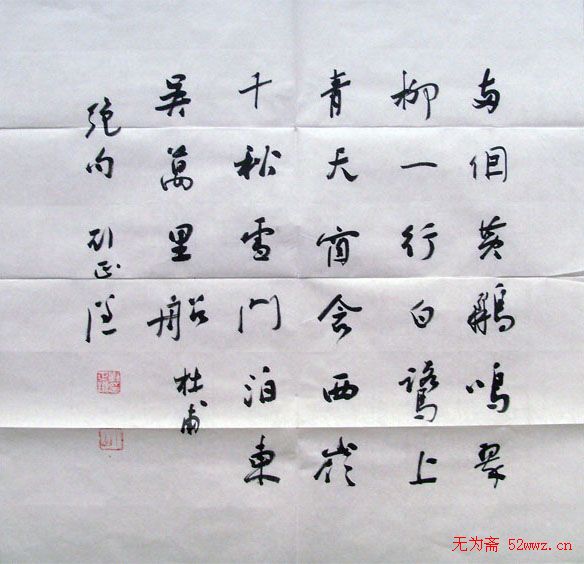 两個黄鸝鳴翠
柳一行白鷺上
青天窗含西嶺
千秋雪門泊東
吴萬里船
杜甫
絶句
无为斋 52wwz.cn